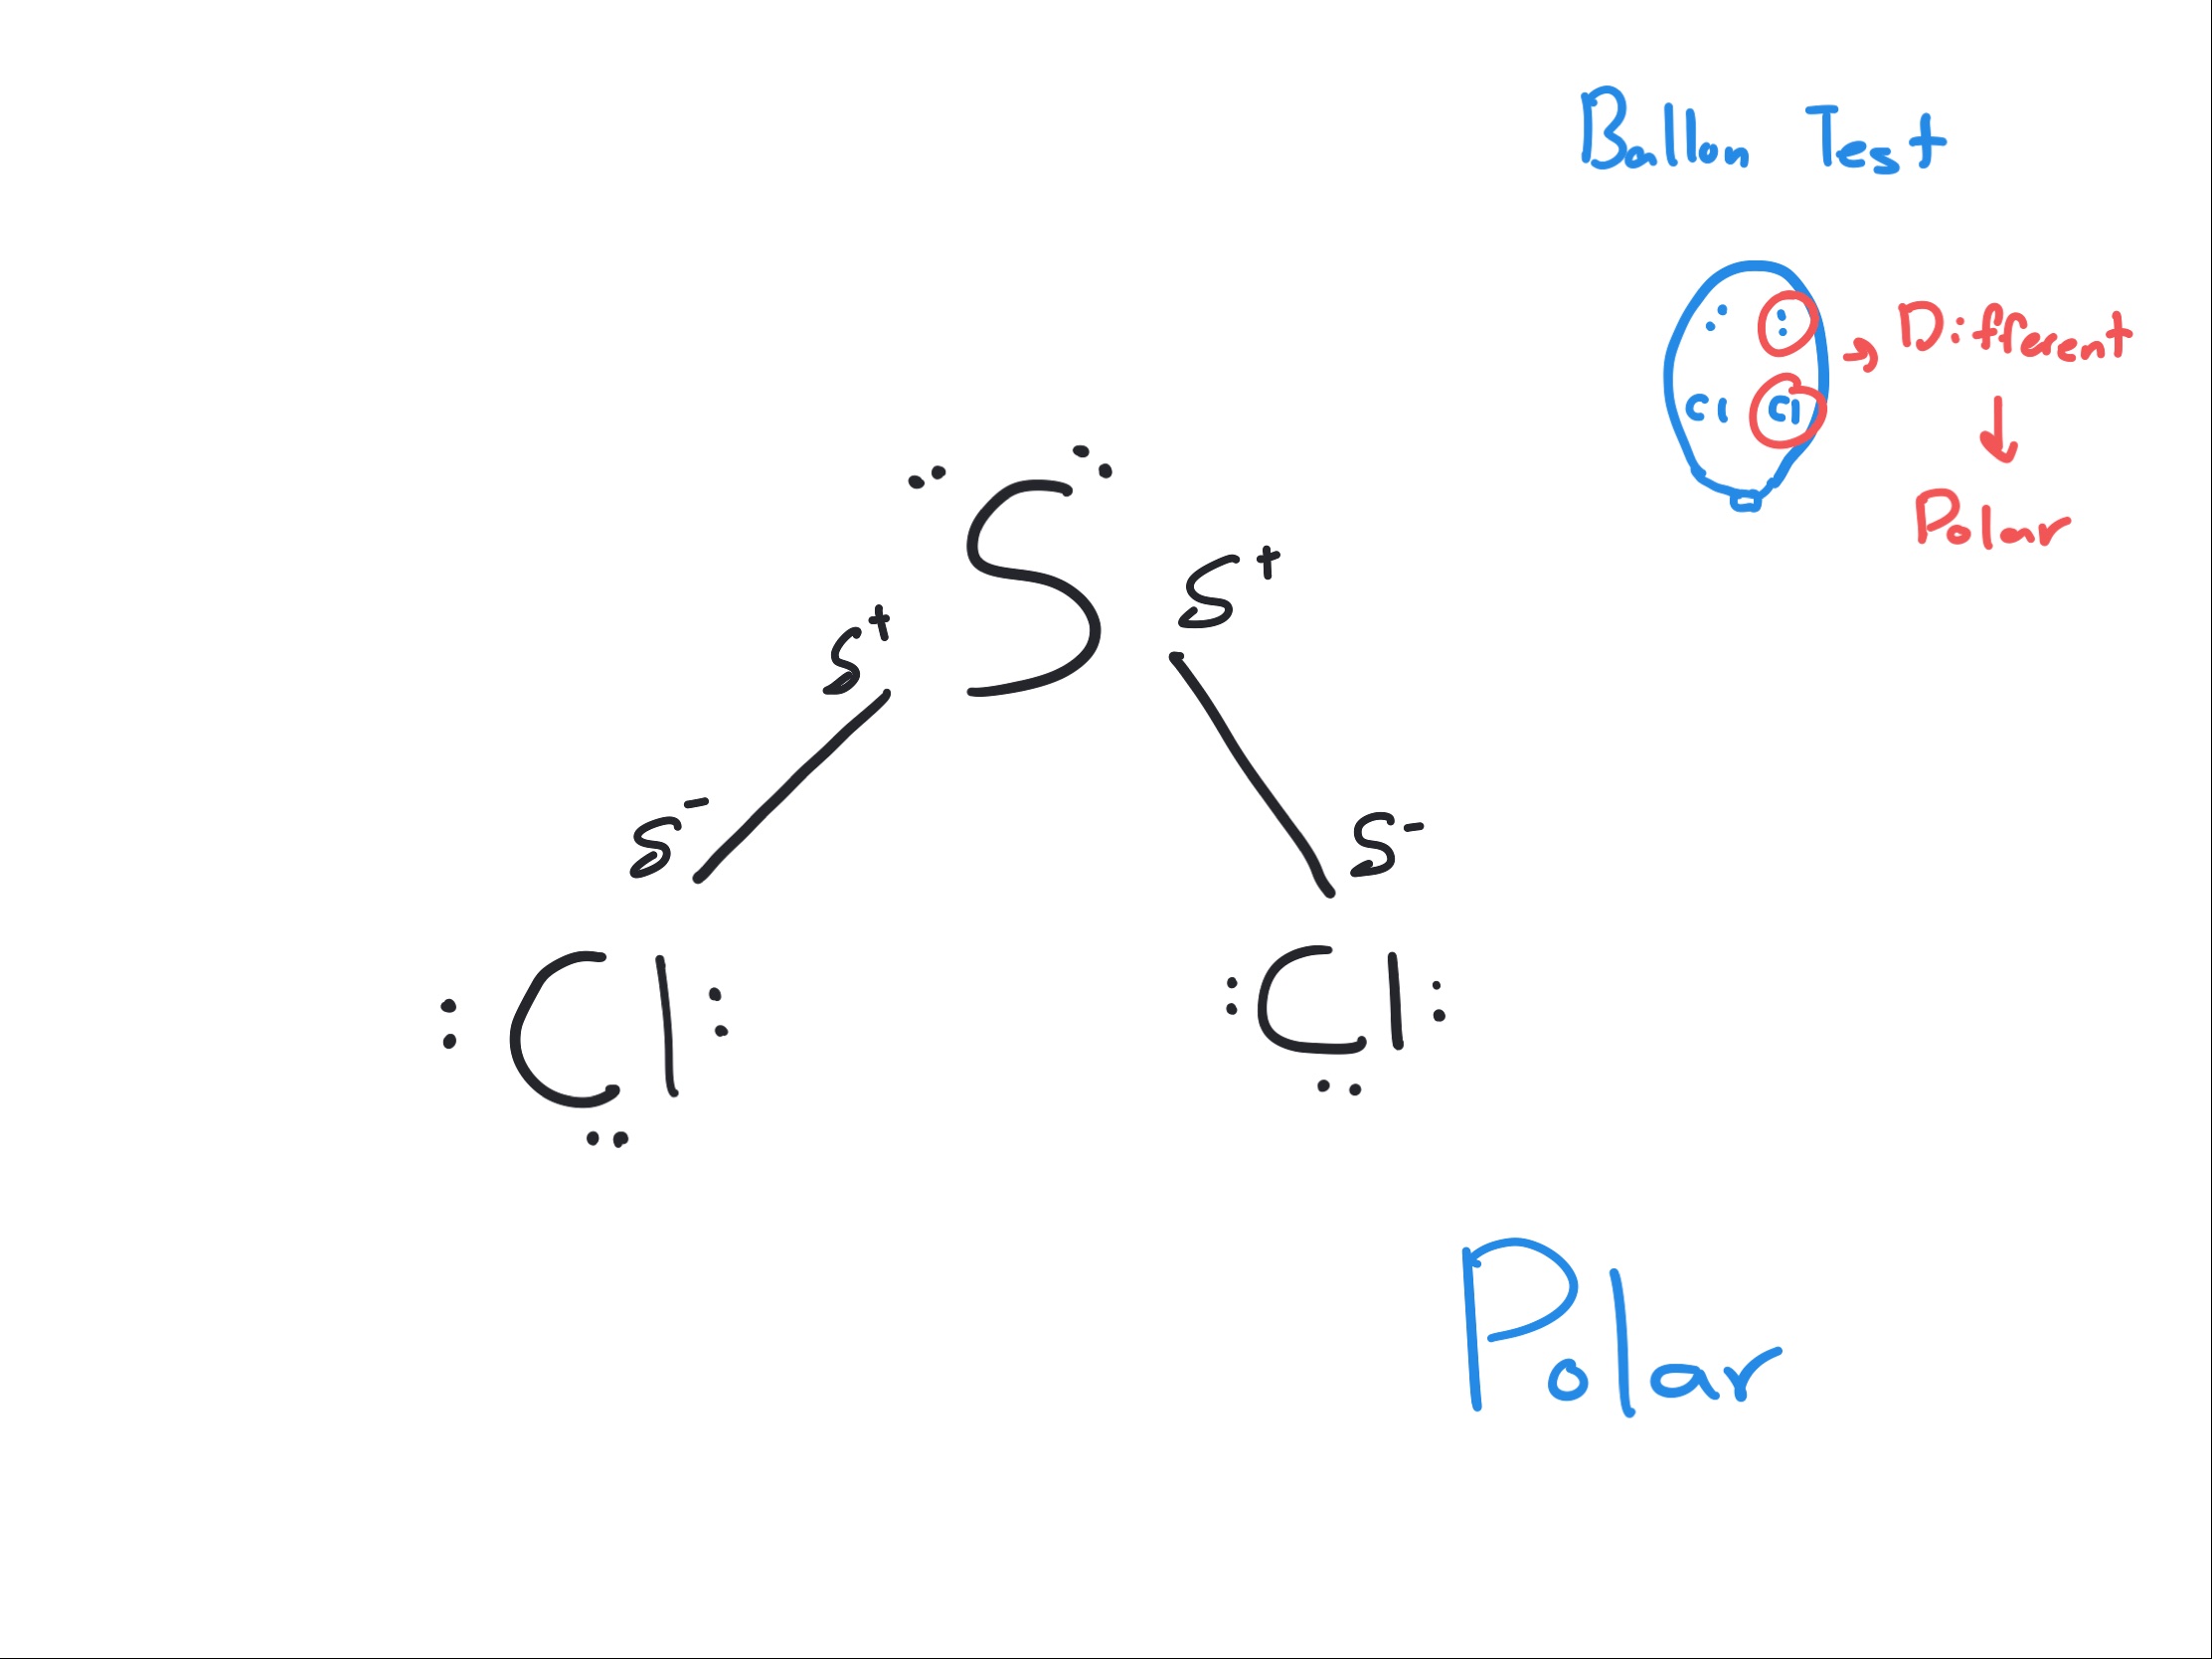 Ballon Test
: : → Different
Cl Cl
↓
Polar
S
δ+ δ+
δ- δ-
:Cl: :Cl:
Polar